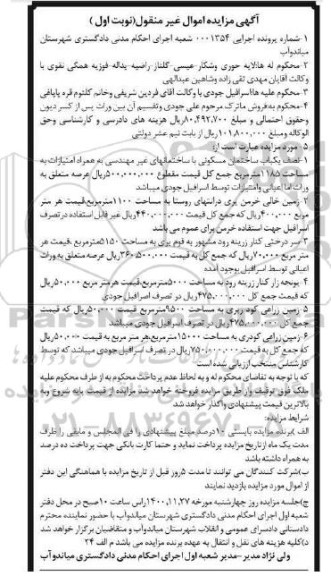 آگهی مزایده اموال غیر منقول(نوبت اول )
۱ شماره پرونده اجرایی ۰۰۰۱۳۵۴ شعبه اجرای احکام مدنی دادگستری شهرستان
میاندوآب
۲ محکوم له ها:لایه حوری وشکار عیسی گلناز راضیه یداله فوزیه همکی نقوی با
وکالت آقایان مهدی تقی زاده وشاهین عبدالهی
۳ محکوم علیه ها:اسرافیل جودی با وکالت آقای فردین شریفی وخانم کلثوم قره پاپاقی
۴ محکوم به:فروش ماترک مرحوم علی جودی وتقسیم آن بین وراث پس از کسر دیون
وحقوق احتمالی و مبلغ ۱۰,۴۹۲,۷۰۰ریال هزینه های دادرسی و کارشناسی وحق
الوکاله ومبلغ ۱۰۱,۸۰۰,۰۰۰ ریال از بابت نیم عشر دولتی
۵ - مورد مزایده عبارت است از:
۱-نصف یکباب ساختمان مسکونی با ساختمانهای غیر مهندسی به همراه امتیازات به
مساحت ۱۱۸۵مترمربع جمع کل قیمت مقطوع ۵,۰۰۰,۰۰۰,۰۰۰ریال عرصه متعلق به
وراث اما اعیانی وامتیازات توسط اسرافیل جودی میباشد
۲ زمین خالی خرمن یری درانتهای روستا به مساحت ۱۱۰۰مترمربع،قیمت هر متر
مربع ۴۰۰,۰۰۰ریال که جمع کل قیمت ۴۴۰,۰۰۰,۰۰۰ریال غیر قابل استفاده درتصرف
اسرافیل جهت استفاده خرمن برای عموم می باشد
۳ سر درختی کنار زرینه رود مشهور به قوم یری به مساحت ۵۱۵۰مترمربع ،قیمت هر
متر مربع ۷۰,۰۰۰ریال که جمع کل به قیمت ۳۶۰,۵۰۰,۰۰۰ریال عرصه متعلق به وراث
اعیانی توسط اسرافیل بوجود آمده
۴ یونجه زار کنار زرینه رود به مساحت ۵۰۰۰مترمربع قیمت هر متر مربع ۵۰,۰۰۰ریال
که قیمت جمع کل ۴۷۵,۰۰۰,۰۰۰ریال در تصرف اسرافیل جودی
۵ زمین زراعی کود ریری به مساحت ۹۵۰۰مترمربع قیمت ۵۰,۰۰۰ریال که قیمت
جمع کل ۴۷۵,۰۰۰,۰۰۰ریال در تصرف اسرافیل جودی میباشد
۶ زمین زراعی کودری به مساحت ۱۵۰۰۰مترمربع،هر متر مربع به قیمت ۵۰,۰۰۰ریال
که جمع کل به قیمت ۷۵۰,۰۰۰,۰۰۰ریال در تصرف اسرافیل جودی میباشد که توسط
کارشناس منتخب ارزیابی شده است
که با توجه به تقاضای محکوم له و به لحاظ عدم پرداخت محکوم به از طرف محکوم علیه
ملک فوق توقیف واز طریق مزایده فروخته خواهد شد مزایده از قیمت پایه شروع و به
بالاترین قیمت پیشنهادی واگذار خواهد شد
شرایط مزایده
الف )برنده مزایده بایستی ۱۰درصد مبلغ پیشنهادی را فی المجلس و مابقی را ظرف
مدت یک ماه ازتاریخ مزایده پرداخت نماید و حتما کارت بانکی جهت پرداخت ده درصد
به همراه داشته باشد
ب)شرکت کنندگان می توانند تا مدت ۵روز قبل از تاریخ مزایده با هماهنگی این دفتر
از اموال مورد مزایده بازدید نمایند
ج)جلسه مزایده روز چهارشنبه مورخه ۱۴۰۰,۱۱,۲۷راس ساعت ۱۰صبح در محل دفتر
شعبه اول اجرای احکام مدنی دادگستری شهرستان میاندوآب با حضور نماینده محترم
دادستانی دادسرای عمومی و انقلاب شهرستان میاندوآب و متقاضیان برگزار خواهد شد
د)کلیه هزینه های نقل و انتقال به عهده برنده مزایده می باشد م الف ۲۴
ولی نژاد مدیر -مدیر شعبه اول اجرای احکام مدنی دادگستری میاندوآب